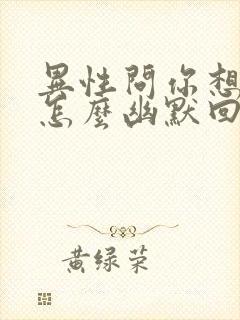 異性問你想
怎麼幽默回
黄绿荣